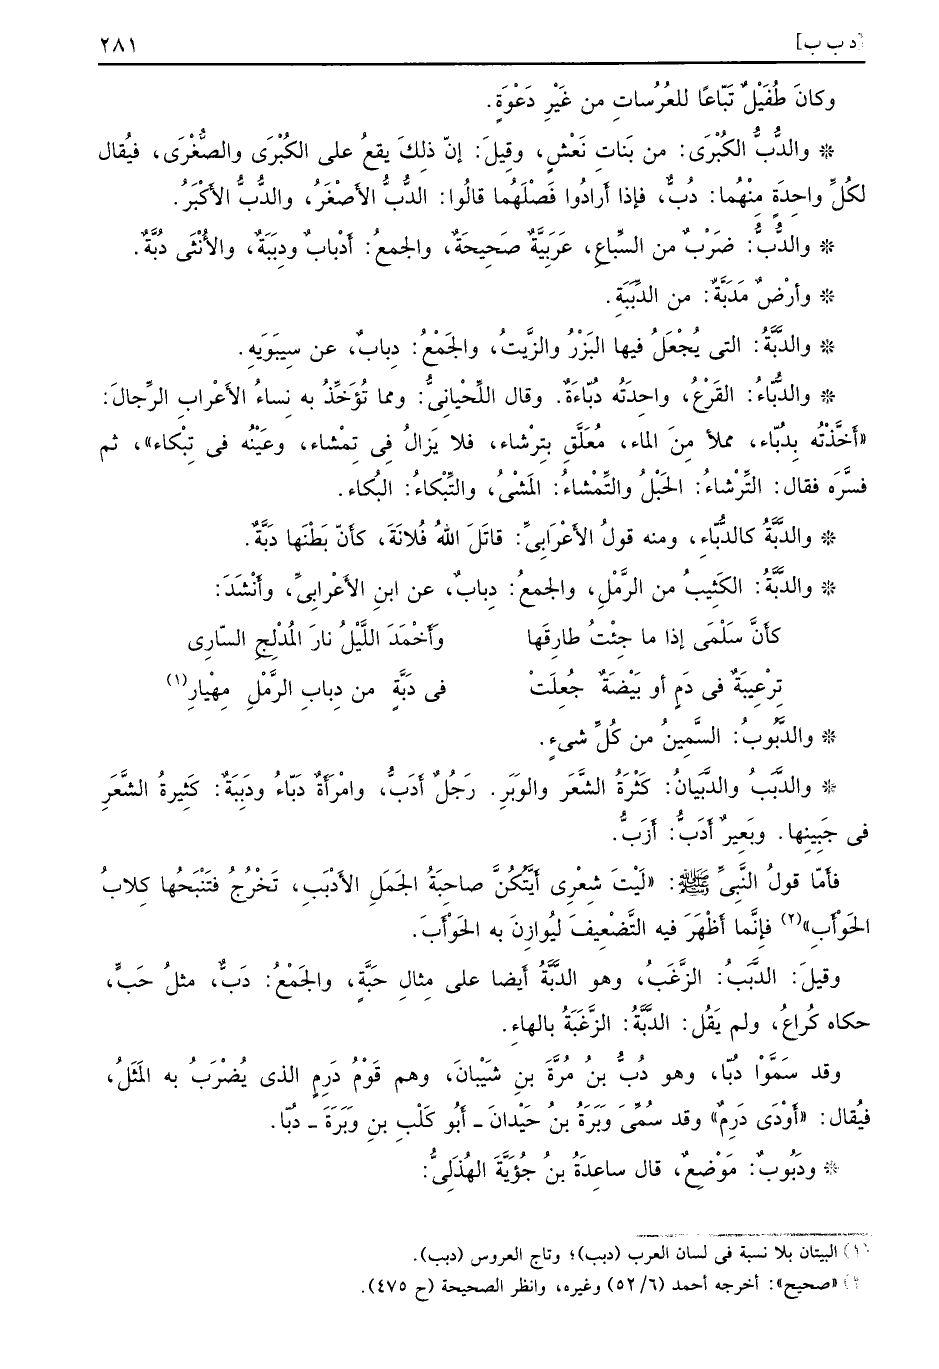 [د ب ب] ٢٨١
وكانَ طُفَيْلٌ تَبَّاعًا للعُرُساتِ من غَيْرِ دَعْوَةٍ.
* والدُّبُّ الكُبْرَى: من بَنات نَعْشٍ، وقيلَ: إنّ ذلكَ يقعُ على الكُبْرَى والصُّغْرَى، فيُقال
لكُلِّ واحِدَةٍ منْهُما: دُبٌّ، فإذا أرَادُوا فَصْلَهُما قالُوا: الدُّبُّ الأصْغَرُ، والدُّبُّ الأكْبَرُ.
* والدُّبُّ: ضَرْبٌ من السِّباعِ، عَرَبِيَّةٌ صَحِيحَةٌ، والجمعُ: أدْبابٌ ودِبَبَةٌ، والأُنْثَى دُبَّةٌ.
* وأرْضٌ مَدَبَّةٌ: من الدِّبَبَةِ.
* والدَّبَّةُ: التى يُجْعَلُ فيها البَزْرُ والزَّيتُ، والجَمْعُ: دِبابٌ، عن سِيبَوَيهِ.
* والدُّبّاءُ: القَرْعُ، واحِدَتُه دُبّاءَةٌ. وقال اللِّحْيانىُّ: ومما تُؤَخِّذُ به نِساءُ الأعْرابِ الرِّجالَ:
«أخَّذْتُه بِدُبّاء، مملأ منَ الماء، مُعَلَّقٍ بتِرْشاء، فلا يَزالُ فِى تِمْشاء، وعَيْنُه فى تِبْكاء»، ثم
فسَّرَه فقال: التِّرْشاءُ: الحَبْلُ والتِّمْشاءُ: المَشْىُ، والتِّبْكاءُ: البُكاء.
* والدَّبَّةُ كالدُّبّاءِ، ومنه قولُ الأعْرَابىِّ: قاتَلَ اللهُ فُلانَةَ، كأنّ بَطْنَها دَبَّةٌ.
* والدَّبَّةُ: الكَثِيبُ من الرَّمْلِ، والجمعُ: دِبابٌ، عن ابنِ الأعْرابىِّ، وأنْشَدَ:
كأنَّ سَلْمَى إذا ما جئْتُ طارِقَها وَأخْمَدَ اللَّيْلُ نارَ المُدْلِجِ السّارِى
تِرْعِيبَةٌ فى دَمٍ أو بَيْضَةٌ جُعِلَتْ فى دَبَّةٍ من دِبابِ الرَّمْلِ مِهْيارِ(١)
* والدَّبُوبُ: السَّمِينُ من كُلِّ شىءٍ.
* والدَّبَبُ والدَّبَبانُ: كَثْرَةُ الشَّعَر والوَبَرِ. رَجُلٌ أدَبُّ، وامْرأةٌ دَبّاءُ ودَبِبَةٌ: كَثيرةُ الشَّعَرِ
فى جَبِينِها. وبَعِيرٌ أدَبُّ: أزَبُّ.
فأمّا قولُ النَّبىِّ ﷺ: «لَيْتَ شِعْرِى أيَّتُكُنَّ صاحِبَةُ الجَمَلِ الأدْبَبِ، تَخْرُجُ فتَنْبَحُها كلابُ
الحَوْأبِ»(٢) فإنَّما أظْهَرَ فيه التَّضْعيفَ ليُوازِنَ به الحَوْأبَ.
وقيلَ: الدَّبَبُ: الزَّغَبُ، وهو الدَّبَّةُ أيضا على مِثالِ حَبَّةٍ، والجَمْعُ: دَبٌّ، مثلُ حَبٍّ،
حكاه كُراعُ، ولم يَقُل: الدَّبَّةُ: الزَّغَبَةُ بالهاءِ.
وقد سَمَّوْا دُبّا، وهو دُبُّ بنُ مُرَّةَ بنِ شَيْبانَ، وهم قَوْمُ دَرِمٍ الذى يُضْرَبُ به المَثَلُ،
فيُقال: «أوْدَى دَرِمٌ» وقد سُمِّىَ وَبَرَةُ بنُ حَيْدانَ ـ أبُو كَلْبِ بنِ وَبَرَةَ ـ دُبّا.
* ودَبُوبٌ: مَوْضِعٌ، قال ساعِدَةُ بنُ جُؤَيَّةَ الهُذَلىُّ:
(١) البيتان بلا نسبة فى لسان العرب (دبب)؛ وتاج العروس (دبب).
(٢) «صحيح»: أخرجه أحمد (٥٢/٦) وغيره، وانظر الصحيحة (ح ٤٧٥).